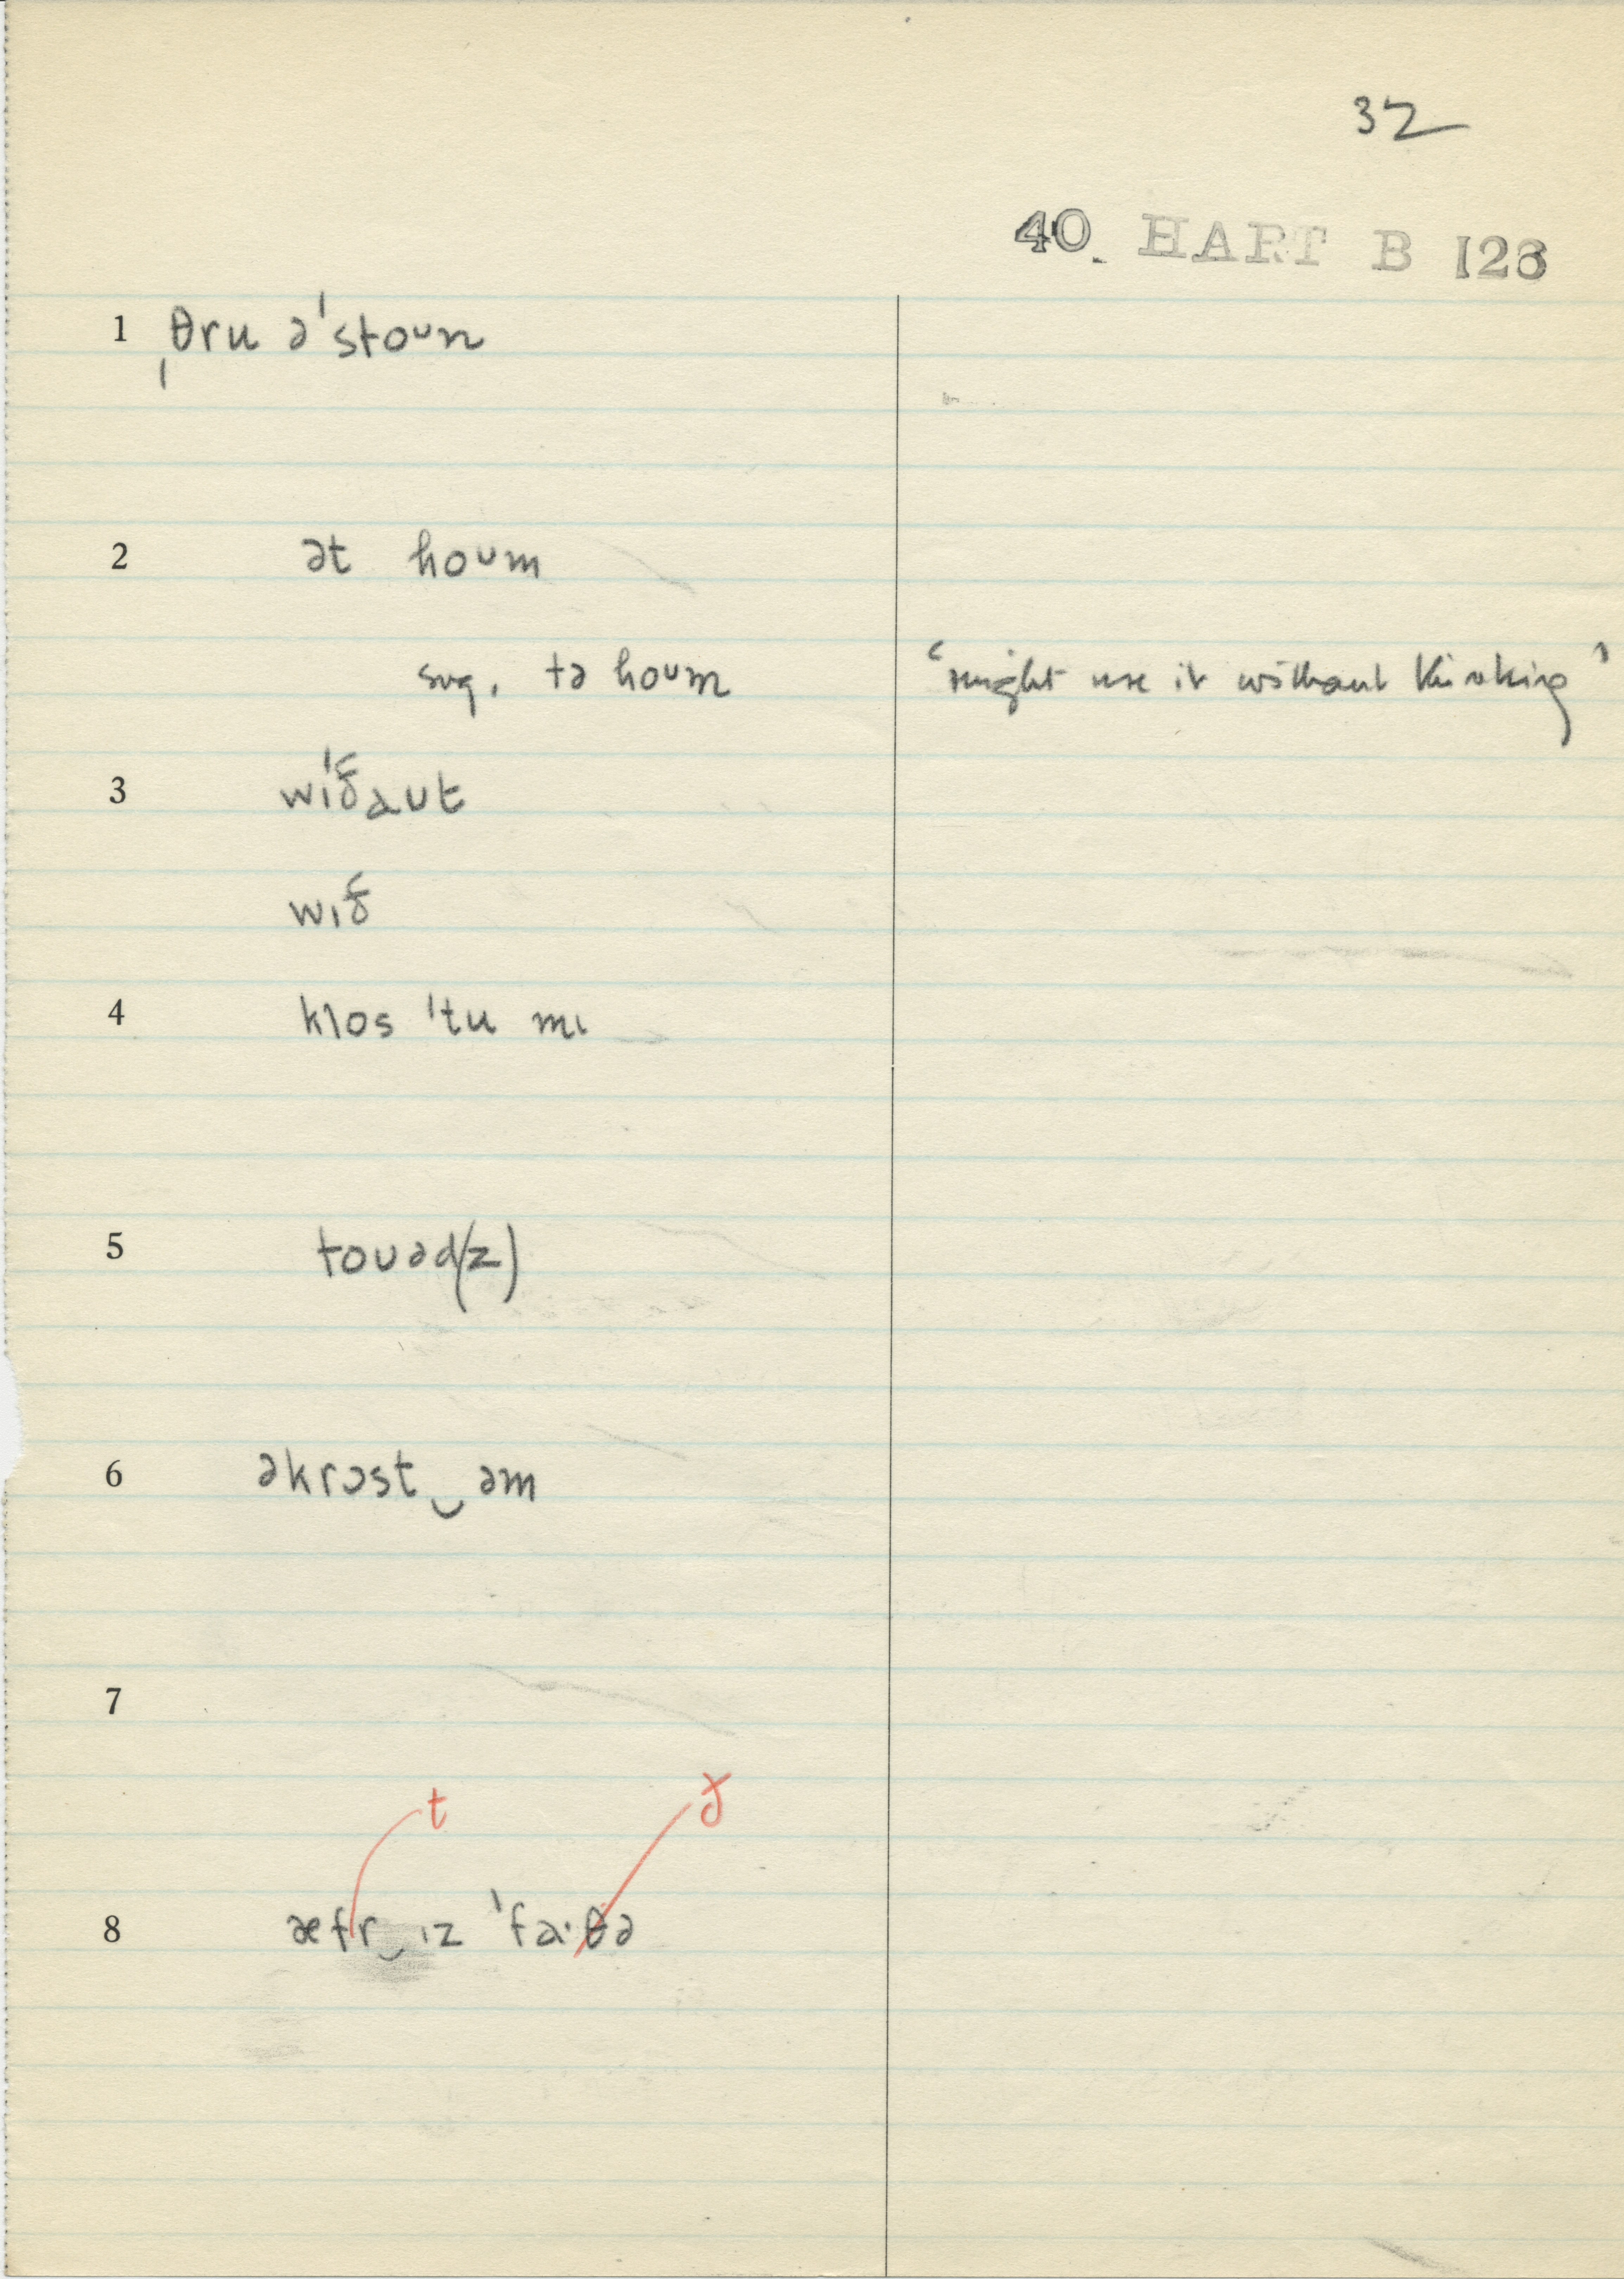 32
40. HART B 126
1 ˌθru ə'stoᴜn
2 ət hoᴜm
sug. tə hoᴜm ‘might use it without thinking’
3 wɪ'ðaᴜt
wɪð
4 klos 'tu mɪ
5 toᴜəd(z)
6 əkrɔst‿əm
7
t ð
8 æfr‿ɪz 'fa·θə